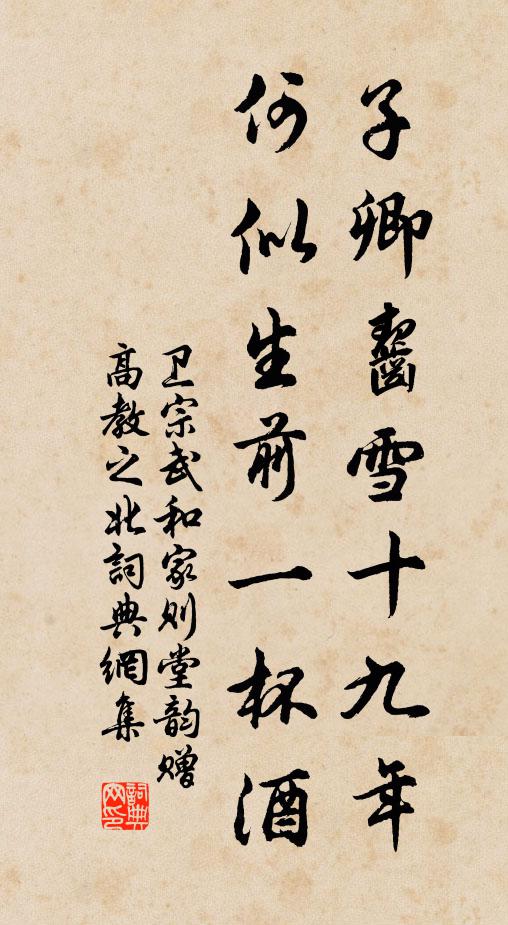 子卿齧雪十九年
何似生前一杯酒
卫宗武和家则堂韵赠
高教之北詞典網集
詞典网印